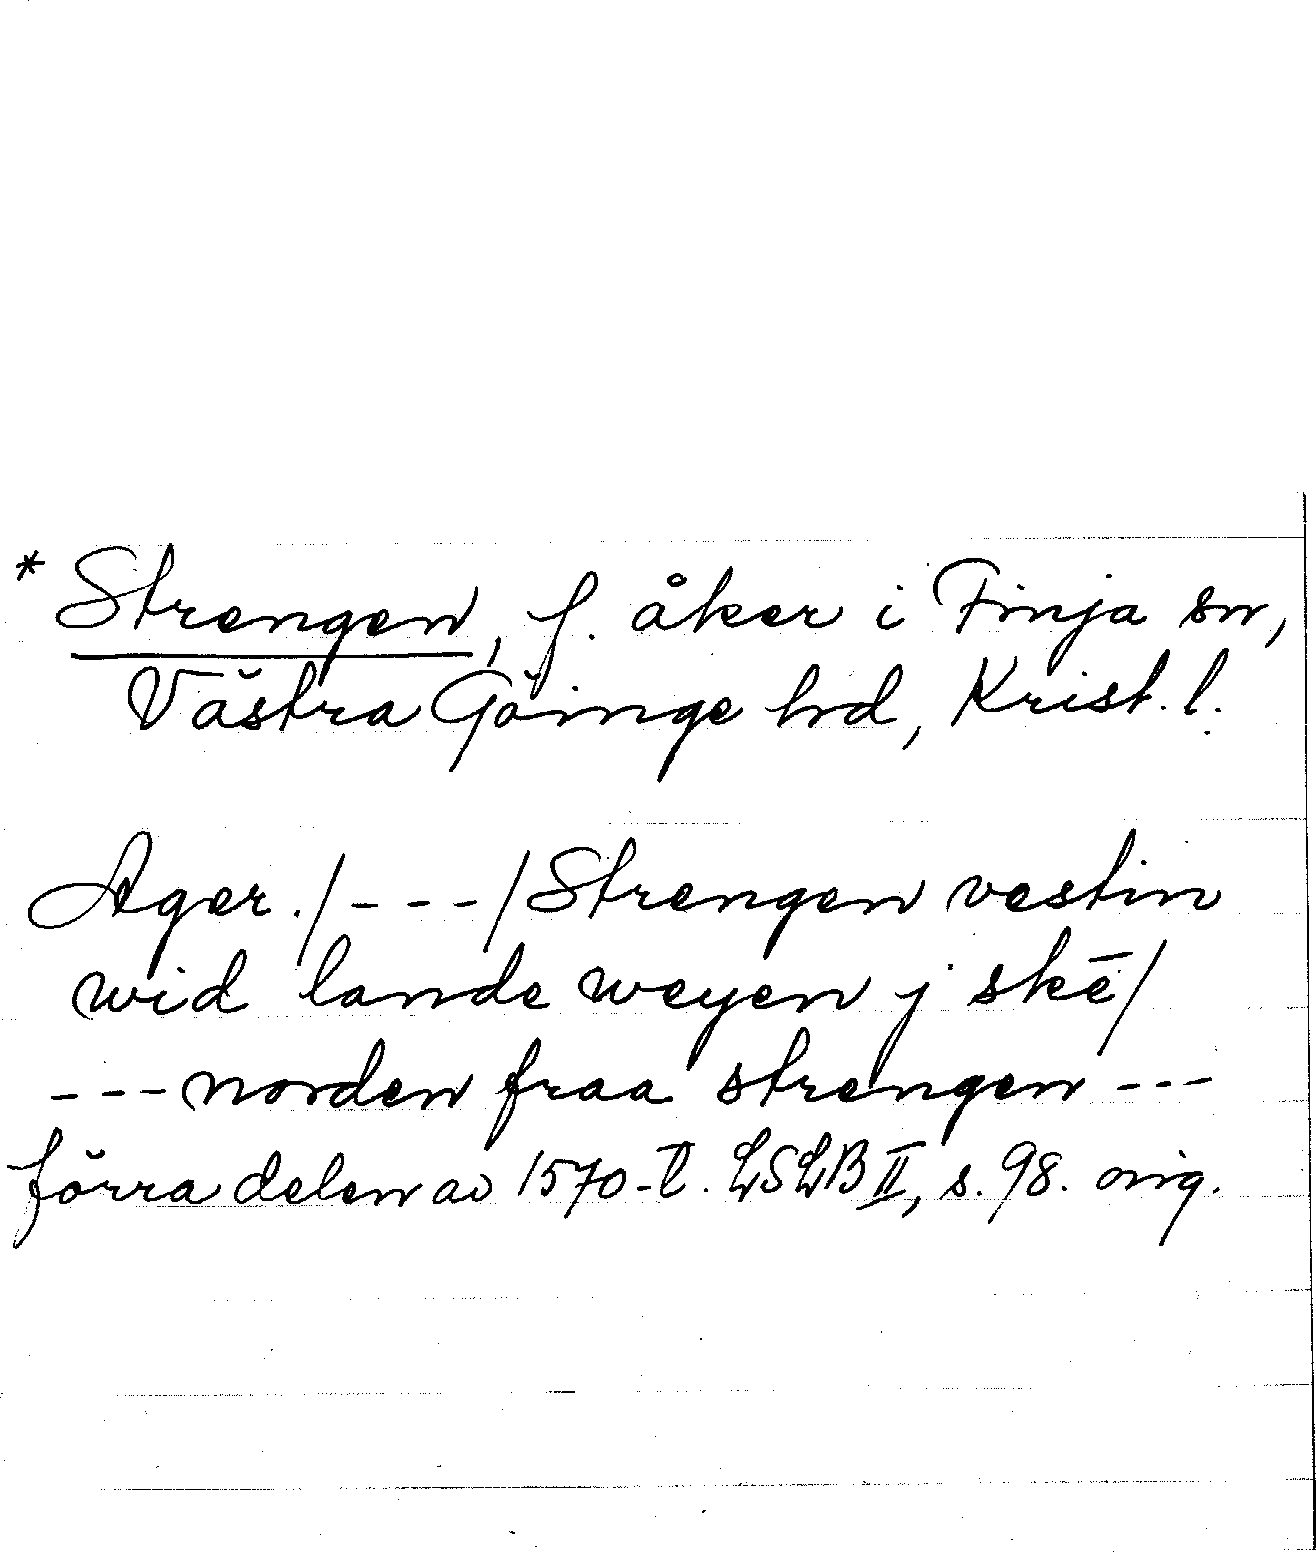 * Strengen, f. åker i Finja sn,
Västra Göinge hd, Krist. l.
Ager. / - - - / Strengen vestin
wid lande weyen j skē /
- - - norden fraa strengen - - -
förra delen av 1570-t. LSLB II, s. 98. orig.